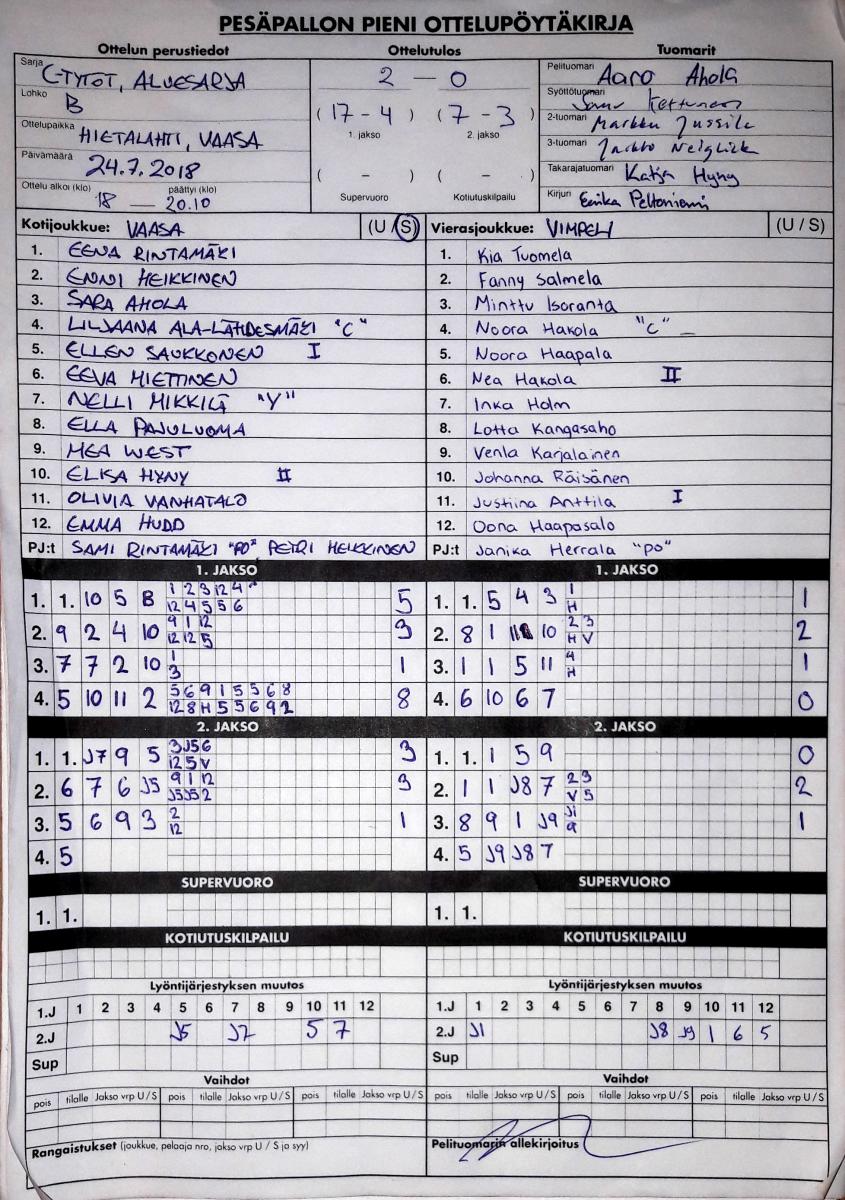 PESÄPALLON PIENI OTTELUPÖYTÄKIRJA
Ottelun perustiedot
Sarja C-TYTÖT, ALUESARJA
Lohko B
Ottelupaikka HIETALAHTI, VAASA
Päivämäärä 24.7.2018
Ottelu alkoi (klo) 18 — päättyi (klo) 20.10
Ottelutulos
2 — 0
( 17 - 4 ) ( 7 - 3 )
1. jakso 2. jakso
( - ) ( - )
Supervuoro Kotiutuskilpailu
Tuomarit
Pelituomari Aaro Ahola
Syöttötuomari Kettunen
2-tuomari Markku Jussila
3-tuomari Jarkko
Takarajatuomari Katja Hyny
Kirjuri Eerika Peltoniemi
Kotijoukkue: VAASA (U / S)
1. EENA RINTAMÄKI
2. ENNI HEIKKINEN
3. SARA AHOLA
4. LILJAANA ALA-LAHDESMÄKI "C"
5. ELLEN SAUKKONEN I
6. EEVA MIETTINEN
7. NELLI MIKKILÄ "Y"
8. ELLA PAJULUOMA
9. MEA WEST
10. ELISA HYNY II
11. OLIVIA VANHATALO
12. EMMA HUDD
PJ:t SAMI RINTAMÄKI "PO" PETRI HEIKKINEN
Vierasjoukkue: VIMPELI (U / S)
1. Kia Tuomela
2. Fanny Salmela
3. Minttu Isoranta
4. Noora Hakola "C"
5. Noora Haapala
6. Nea Hakola II
7. Inka Holm
8. Lotta Kangasaho
9. Venla Karjalainen
10. Johanna Räisänen
11. Justiina Anttila I
12. Oona Haapasalo
PJ:t Janika Herrala "PO"
1. JAKSO
1. 1. 10 5 8 1 2 3 12 4 5
12 4 5 5 6
2. 9 2 4 10 9 1 12 3
12 12 5
3. 7 7 2 10 1 1
3
4. 5 10 11 2 5 6 9 1 5 5 6 8 8
12 8 H 5 5 6 9 2
1. JAKSO
1. 1. 5 4 3 1 1
H
2. 8 1 10 2 3 2
H V
3. 1 1 5 11 4 1
H
4. 6 10 6 7 0
2. JAKSO
1. 1. J7 9 5 3 J5 6 3
12 5 V
2. 6 7 6 J5 9 1 12 3
J5 J5 2
3. 5 6 9 3 2 1
12
4. 5
2. JAKSO
1. 1. 1 5 9 0
2. 1 1 J8 7 2 3 2
V 5
3. 8 9 1 J9 J1 1
9
4. 5 J9 J8 7
SUPERVUORO
1. 1.
SUPERVUORO
1. 1.
KOTIUTUSKILPAILU
KOTIUTUSKILPAILU
Lyöntijärjestyksen muutos
1.J 1 2 3 4 5 6 7 8 9 10 11 12
2.J J5 J7 5 7
Sup
Lyöntijärjestyksen muutos
1.J 1 2 3 4 5 6 7 8 9 10 11 12
2.J J1 J8 J9 1 6 5
Sup
Vaihdot
pois tilalle Jakso vrp U / S pois tilalle Jakso vrp U / S pois tilalle Jakso vrp U / S
Vaihdot
pois tilalle Jakso vrp U / S pois tilalle Jakso vrp U / S pois tilalle Jakso vrp U / S
Rangaistukset (joukkue, pelaaja nro, jakso vrp U / S ja syy)
Pelituomarin allekirjoitus